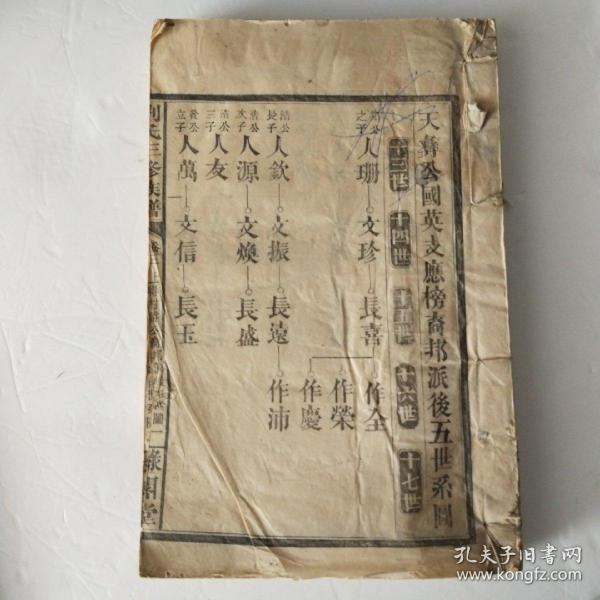 天彝公國英支應榜裔邦派後五世系圖
十三世 十四世 十五世 十六世 十七世
公之子 人珊 文珍 長喜 作全
作榮
作慶
浩公長子 人欽 文振 長遠 作沛
浩公次子 人源 文煥 長盛
浩公三子 人友
公立子 人萬 文信 長玉
劉氏三修族譜
閣堂
孔夫子旧书网
www.kongfz.com